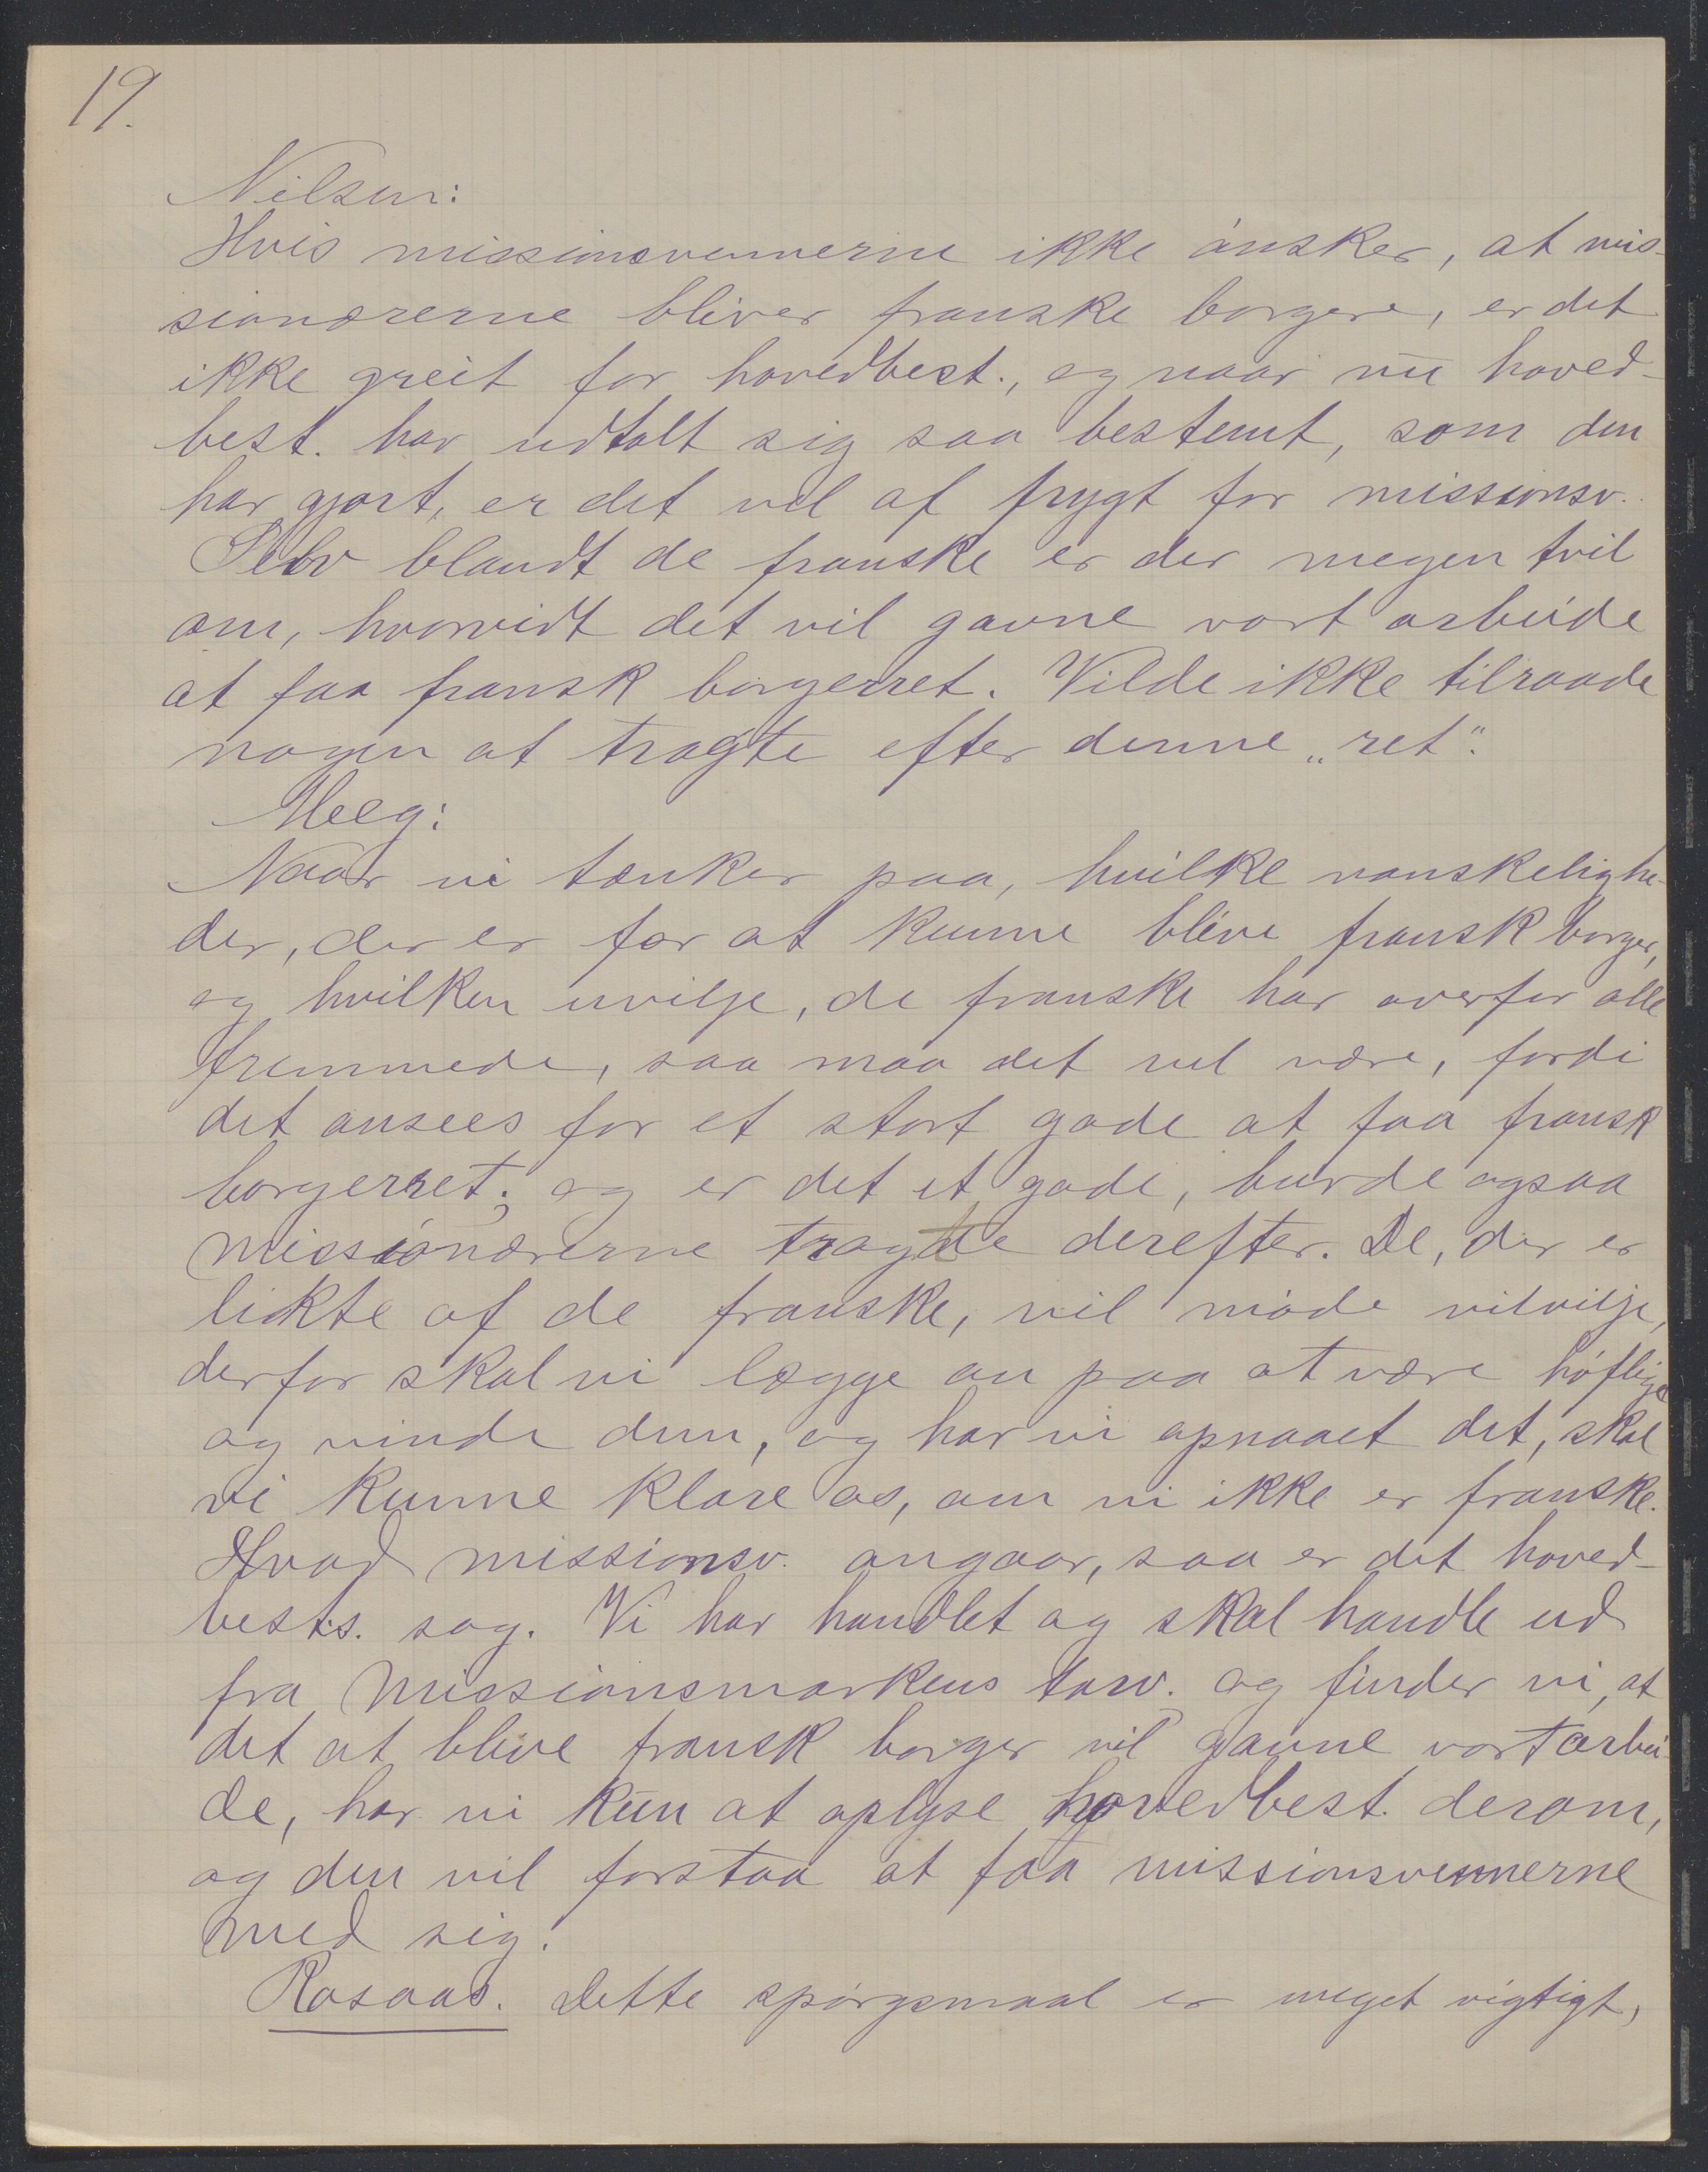 19.
Nilsen:
Hvis missionsvennerne ikke ønsker, at mis-
sionærerne bliver franske borgere, er det
ikke greit for hovedbest., og naar nu hoved-
best. har udtalt sig saa bestemt, som den
har gjort, er det vel af frygt for missionsv.
Selv blandt de franske er der megen tvil
om, hvorvidt det vil gavne vort arbeide
at faa fransk borgerret. Vilde ikke tilraade
nogen at tragte efter denne „ret“.
Meeg:
Naar vi tænker paa, hvilke vanskelighe-
der, der er for at kunne blive fransk borger,
og hvilken uvilje, de franske har overfor alle
fremmede, saa maa det vel være, fordi
det ansees for et stort gode at faa fransk
borgerret; og er det et gode, burde ogsaa
missionærerne tragte derefter. De, der er
likte af de franske, vil møde velvilje,
derfor skal vi lægge an paa at være høflige
og vinde dem, og har vi opnaaet det, skal
vi kunne klare os, om vi ikke er franske.
Hvad missionsv. angaar, saa er det hoved-
best.s. sag. Vi har handlet og skal handle ud
fra missionsmarkens tarv. og finder vi, at
det at blive fransk borger vil gavne vort arbei-
de, har vi kun at oplyse hovedbest. derom,
og den vil forstaa at faa missionsvennerne
med sig.
Rosaas. Dette spørgsmaal er meget vigtigt,